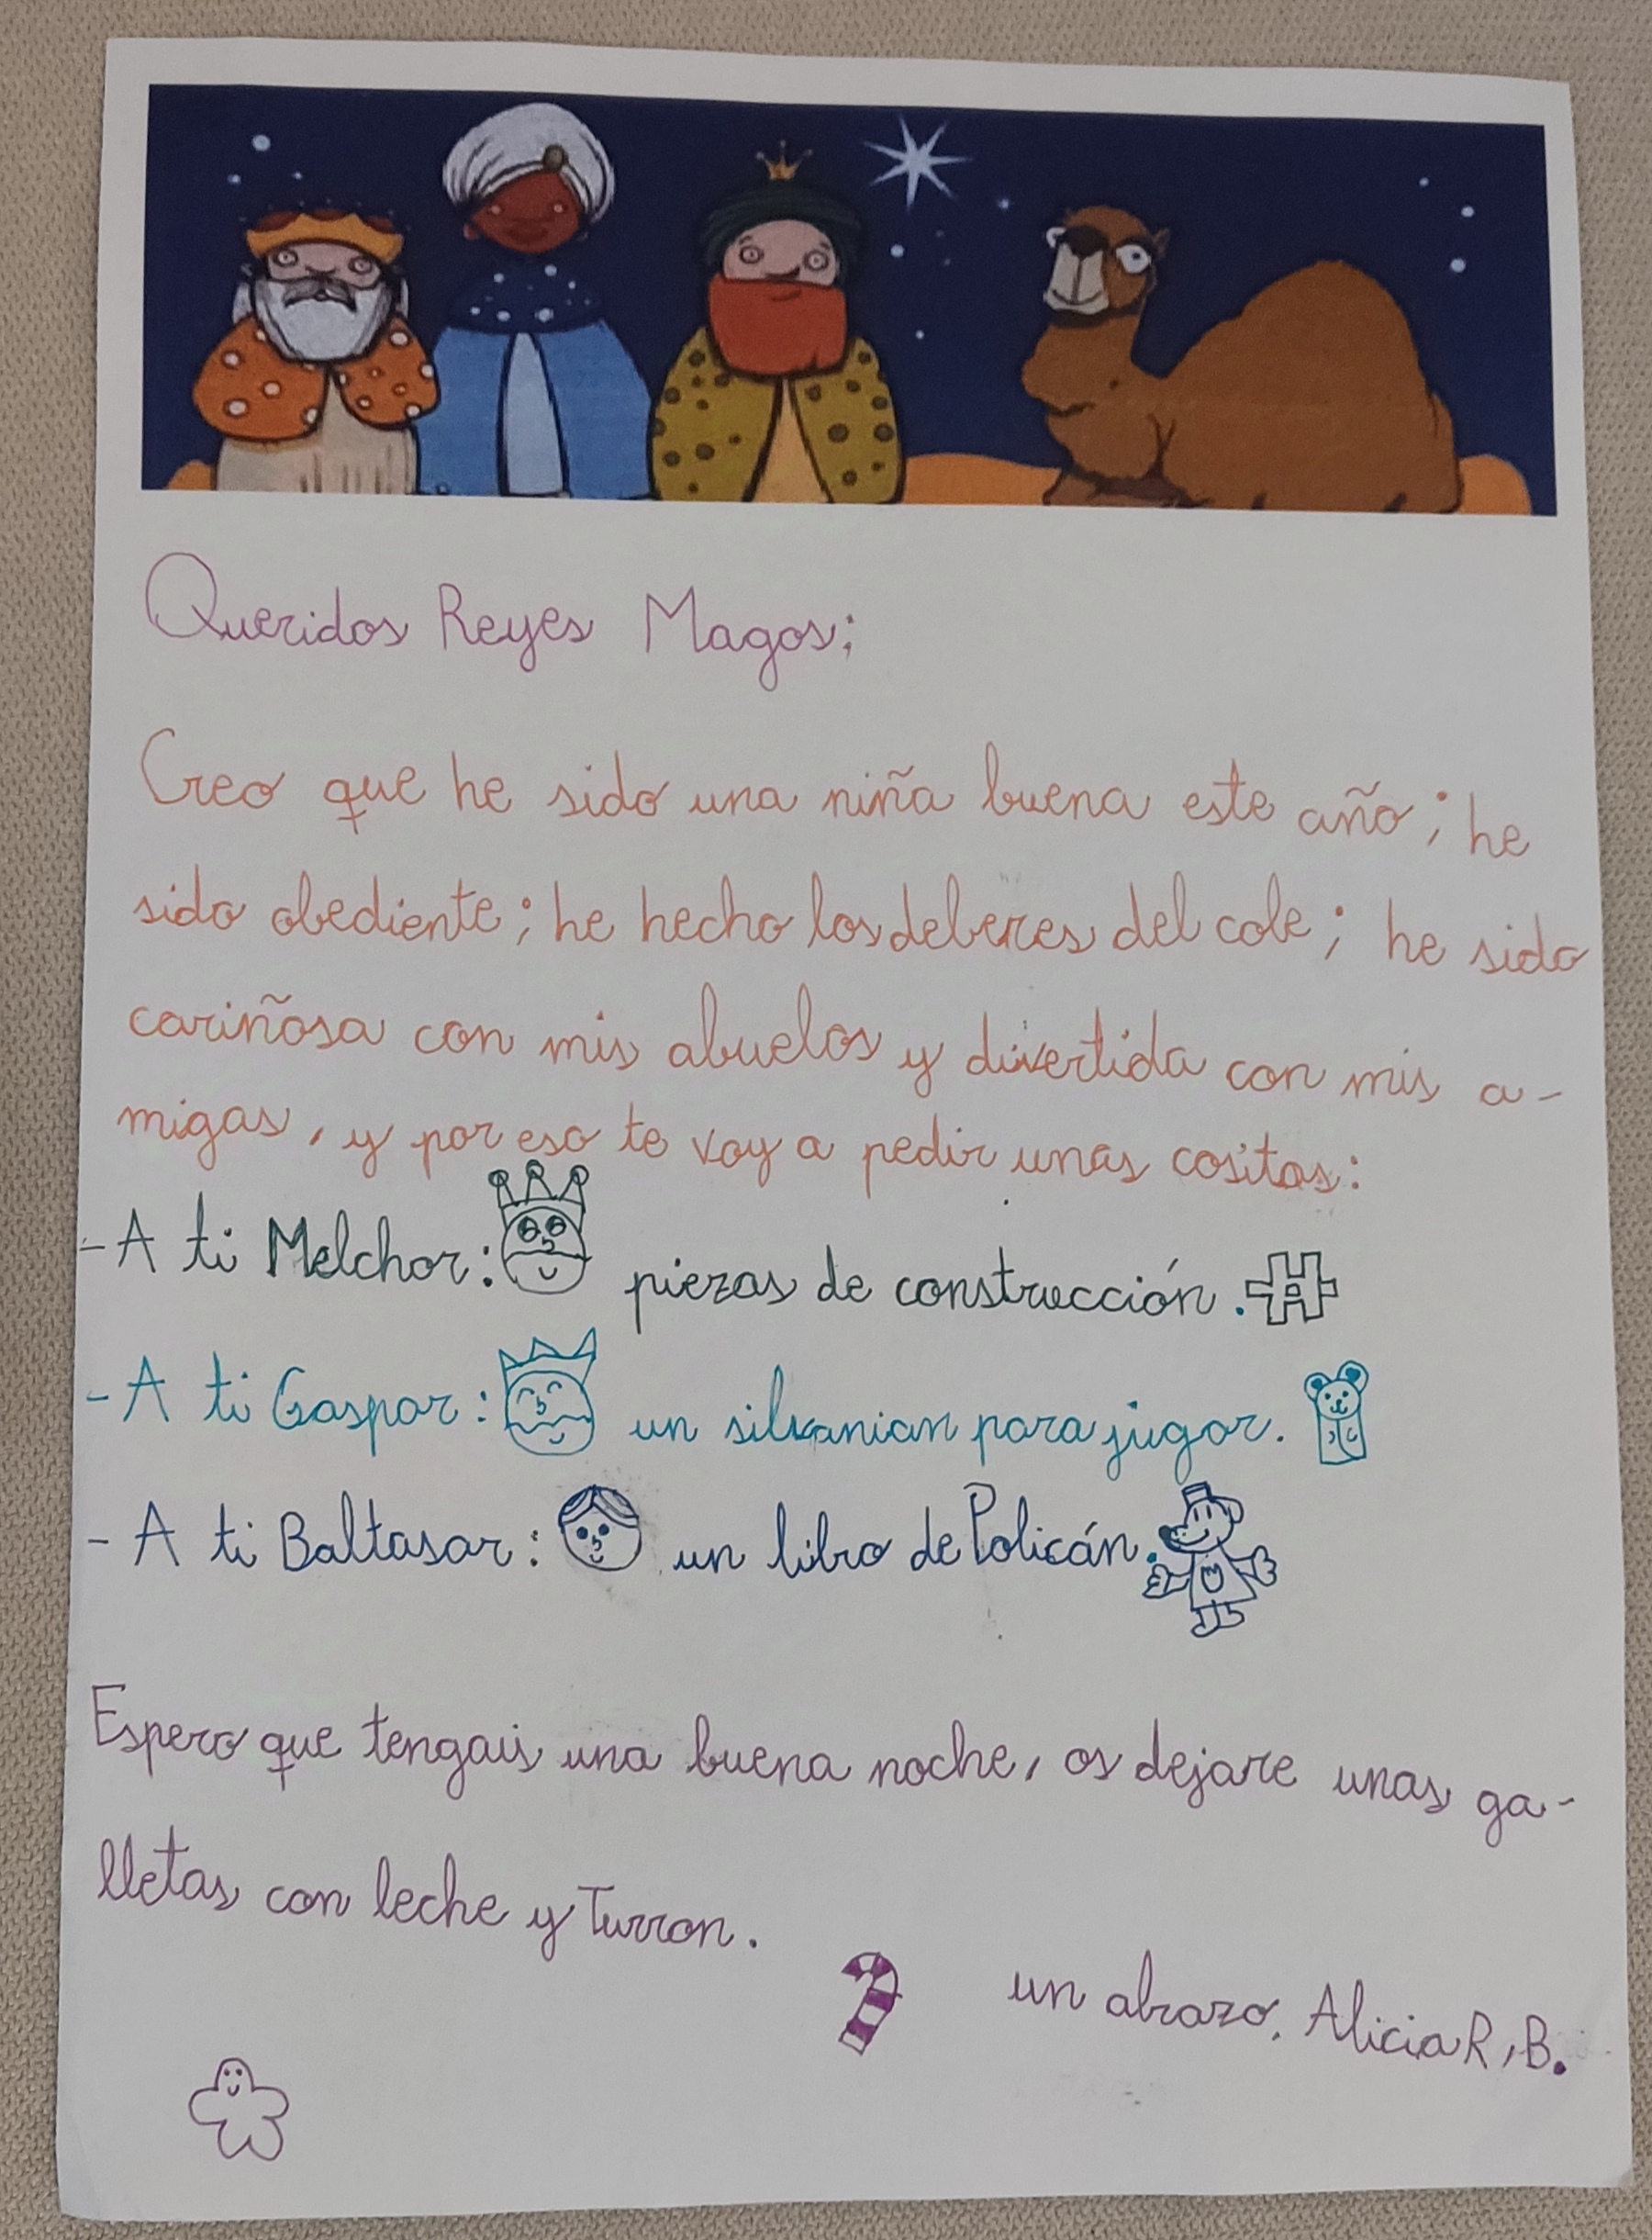 Queridos Reyes Magos;
Creo que he sido una niña buena este año; he
sido obediente; he hecho los deberes del cole; he sido
cariñosa con mis abuelos y divertida con mis a-
migas, y por eso te voy a pedir unas cositas:
- A ti Melchor: piezas de construcción.
- A ti Gaspar: un silvanian para jugar.
- A ti Baltasar: un libro de Policán.
Espero que tengais una buena noche, os dejare unas ga-
lletas con leche y Turron.
un abrazo, Alicia R, B.